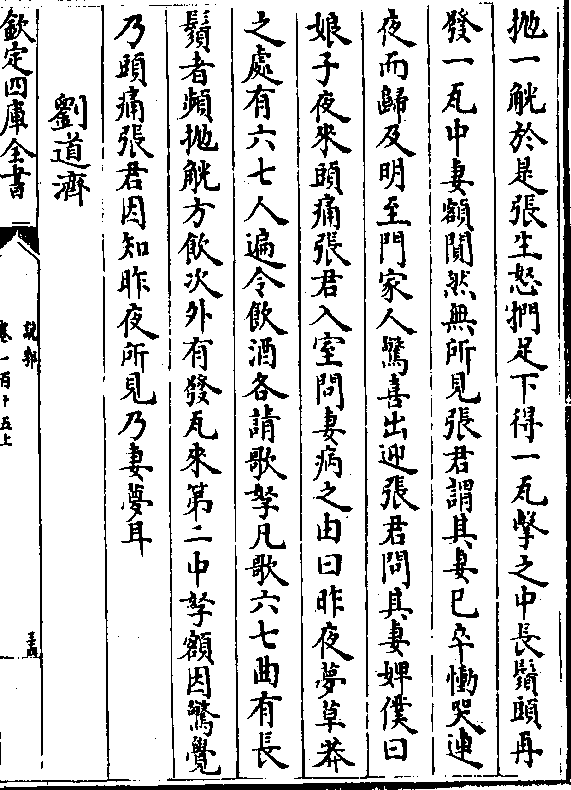 拋一觥於是張生怒捫足下得一瓦擊之中長鬚頭再
發一瓦中妻額閴然無所見張君謂其妻已卒慟哭連
夜而歸及明至門家人驚喜出迎張君問其妻婢僕曰
娘子夜來頭痛張君入室問妻病之由曰昨夜夢草莽
之處有六七人遍令飲酒各請歌孥凡歌六七曲有長
鬚者頻拋觥方飲次外有發瓦來第二中孥額因驚覺
乃頭痛張君因知昨夜所見乃妻夢耳
劉道濟
欽定四庫全書
說郛
卷一百十五上